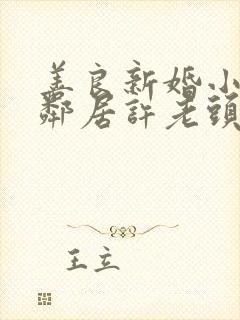 善良新婚小
鄰居許老頭
王立